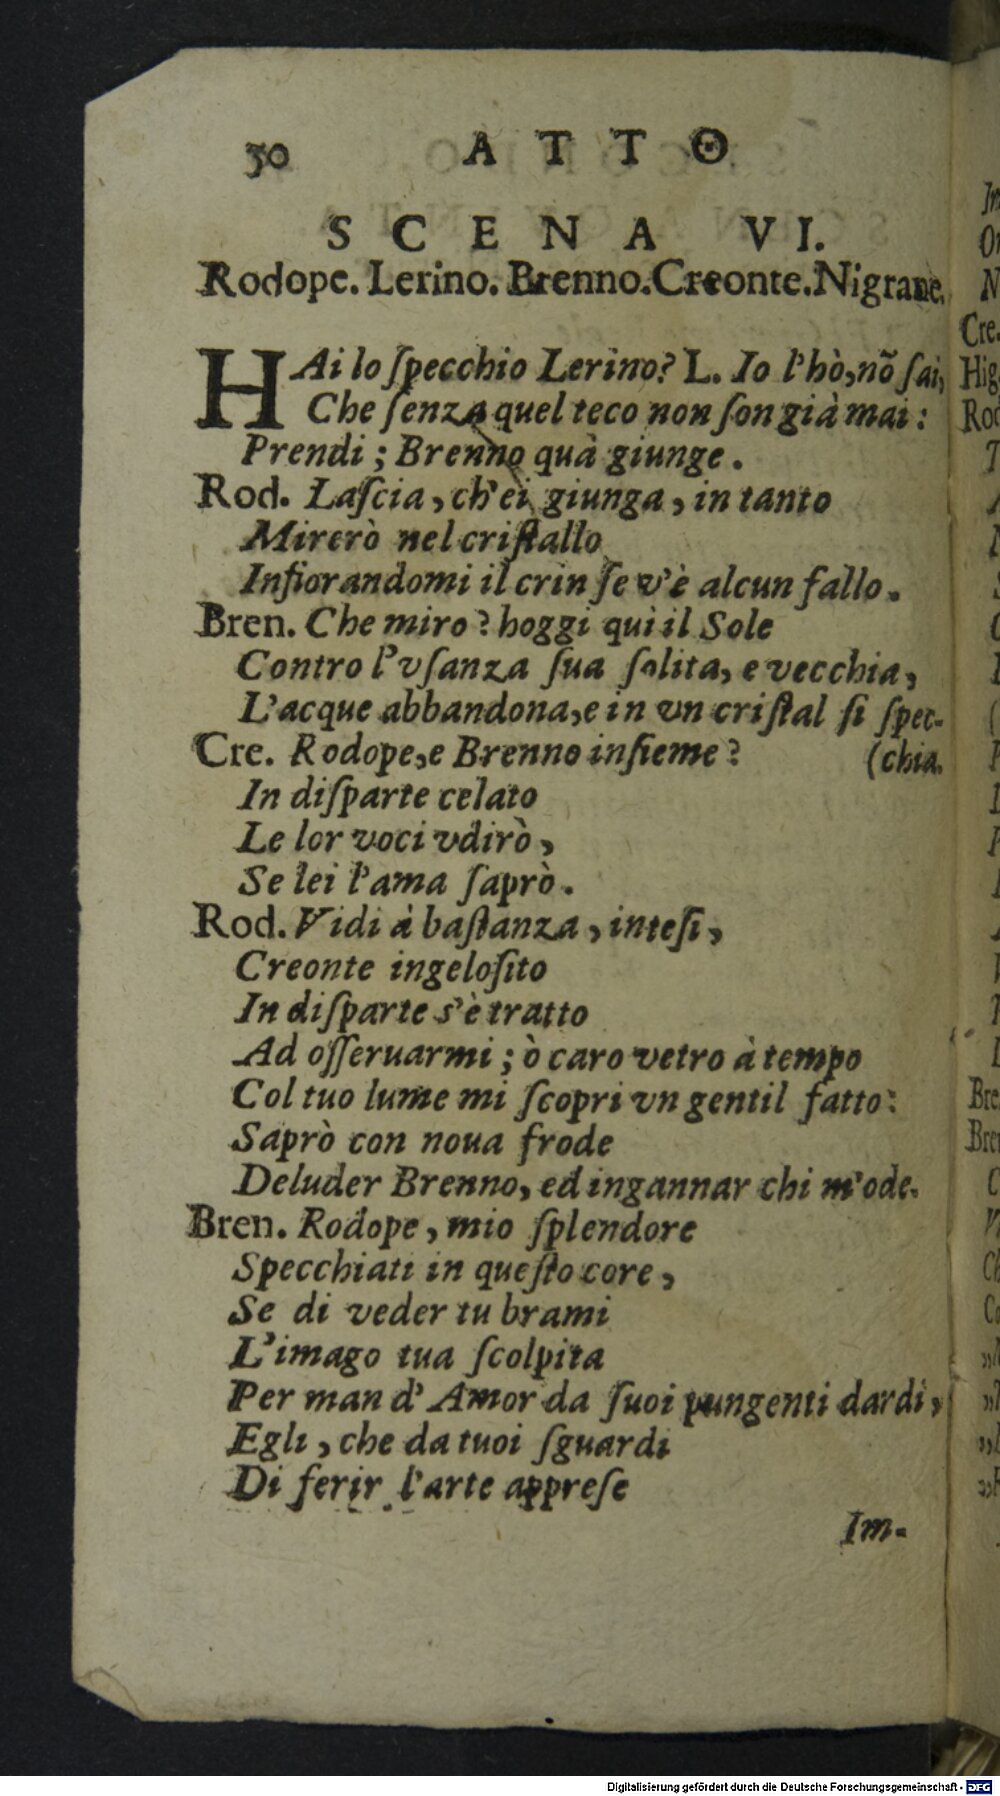 50 ATTO
SCENA VI.
Rodope. Lerino. Brenno. Creonte. Nigrane.
HAi lo ſpecchio Lerino? L. Io l'hò, nõ ſai,
Che ſenza quel teco non ſon già mai:
Prendi; Brenno quà giunge.
Rod. Laſcia, ch'ei giunga, in tanto
Mirerò nel criſtallo
Infiorandomi il crin ſe v'è alcun fallo.
Bren. Che miro? hoggi quì il Sole
Contro l'vſanza ſua ſolita, e vecchia,
L'acque abbandona, e in vn criſtal ſi ſpec-
Cre. Rodope, e Brenno inſieme? (chia.
In diſparte celato
Le lor voci vdirò,
Se lei l'ama ſaprò.
Rod. Vidi à baſtanza, inteſi,
Creonte ingeloſito
In diſparte s'è tratto
Ad oſſeruarmi; ò caro vetro à tempo
Col tuo lume mi ſcopri vn gentil fatto:
Saprò con noua frode
Deluder Brenno, ed ingannar chi m'ode.
Bren. Rodope, mio ſplendore
Specchiati in queſto core,
Se di veder tu brami
L'imago tua ſcolpita
Per man d'Amor da ſuoi pungenti dardi,
Egli, che da tuoi ſguardi
Di ferir l'arte appreſe
Im-
In
N
Cre.
Hig
Rod
Bre
Bren
Digitalisierung gefördert durch die Deutsche Forschungsgemeinschaft - DFG